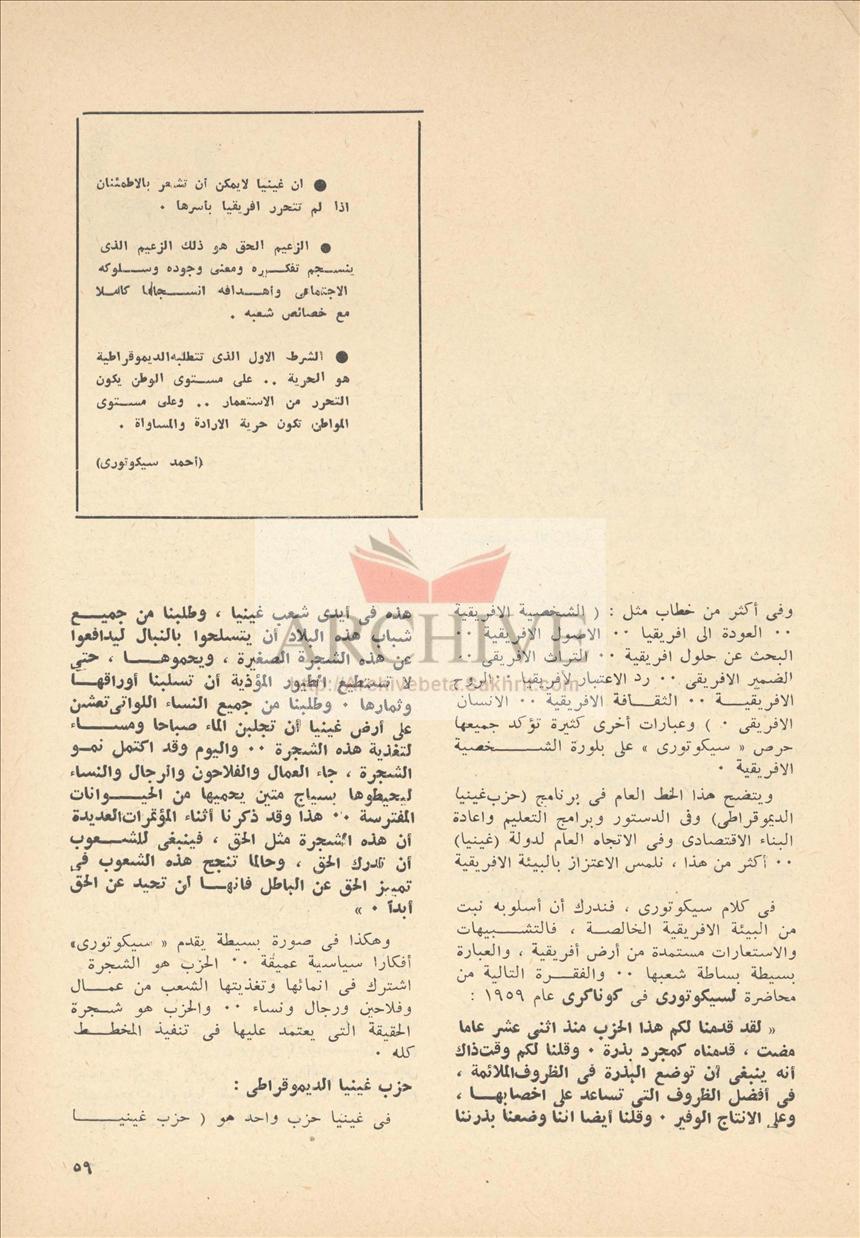 ● ان غينيا لايمكن أن تشعر بالاطمئنان
اذا لم تتحرر افريقيا بأسرها ٠
● الزعيم الحق هو ذلك الزعيم الذى
ينسـجم تفكـيره ومعنى وجوده وسـلوكه
الاجتماعى وأهـدافه انسـجاما كاملا
مع خصائص شعبه .
● الشرط الاول الذى تتطلبه الديموقراطية
هو الحرية .. على مستوى الوطن يكون
التحرر من الاستعمار .. وعلى مستوى
المواطن تكون حرية الارادة والمساواة .
(أحمد سيكوتورى)
وفى أكثر من خطاب مثل : ( الشخصية الافريقية
٠٠ العودة الى افريقيا ٠٠ الاصول الافريقية ٠٠
البحث عن حلول افريقية ٠٠ التراث الافريقى ٠٠
الضمير الافريقى ٠٠ رد الاعتبار لافريقيا ٠٠ الروح
الافريقيـة ٠٠ الثقـافة الافريقية ٠٠ الانسان
الافريقى ٠ ) وعبارات أخرى كثيرة تؤكد جميعها
حرص « سيكوتورى » على بلورة الشـخصية
الافريقية ٠
ويتضح هذا الخط العام فى برنامج (حزب غينيا
الديموقراطى) وفى الدستور وبرامج التعليم واعادة
البناء الاقتصادى وفى الاتجاه العام لدولة (غينيا)
٠٠ أكثر من هذا ، نلمس الاعتزاز بالبيئة الافريقية
فى كلام سيكوتورى ، فندرك أن أسلوبه نبت
من البيئة الافريقية الخالصـة ، فالتشـبيهات
والاستعارات مستمدة من أرض أفريقية ، والعبارة
بسيطة بساطة شعبها ٠٠ والفقـرة التالية من
محاضرة لسيكوتورى فى كوناكرى عام ١٩٥٩ :
« لقد قدمنا لكم هذا الحزب منذ اثنى عشر عاما
مضت ، قدمناه كمجرد بذرة ٠ وقلنا لكم وقت ذاك
أنه ينبغى أن توضع البذرة فى الظروف الملائمة ،
فى أفضل الظروف التى تساعد على اخصابهـا ،
وعلى الانتاج الوفير ٠ وقلنا أيضا اننا وضعنا بذرتنا
هذه فى أيدى شعب غينيا ، وطلبنا من جميـع
شباب هذه البلاد أن يتسلحوا بالنبال ليدافعوا
عن هذه الشجرة الصغيرة ، ويحموهـا ، حتى
لا تستطيع الطيور المؤذية أن تسلبنا أوراقهـا
وثمارها ٠ وطلبنا من جميع النساء اللواتى تعشن
على أرض غينيا أن تجلبن الماء صباحا ومسـاء
لتغذية هذه الشجرة ٠٠ واليوم وقد اكتمل نمـو
الشجرة ، جاء العمال والفلاحون والرجال والنساء
ليحيطوها بسياج متين يحميها من الحيـوانات
المفترسة ٠٠ هذا وقد ذكرنا أثناء المؤتمرات العديدة
أن هذه الشجرة مثل الحق ، فينبغى للشـعوب
أن تدرك الحق ، وحالما تنجح هذه الشعوب فى
تمييز الحق عن الباطل فانهـا لن تحيد عن الحق
أبدا ٠ »
وهكذا فى صورة بسيطة يقدم « سيكوتورى»
أفكارا سياسية عميقة ٠٠ الحزب هو الشجرة
اشترك فى انمائها وتغذيتها الشعب من عمـال
وفلاحين ورجال ونساء ٠٠ والحزب هو شـجرة
الحقيقة التى يعتمد عليها فى تنفيذ المخطـط
كله ٠
حزب غينيا الديموقراطى :
فى غينيا حزب واحد هو ( حزب غينيـا
٥٩
ARCHIVE
http://Archivebeta.Sakhrit.com